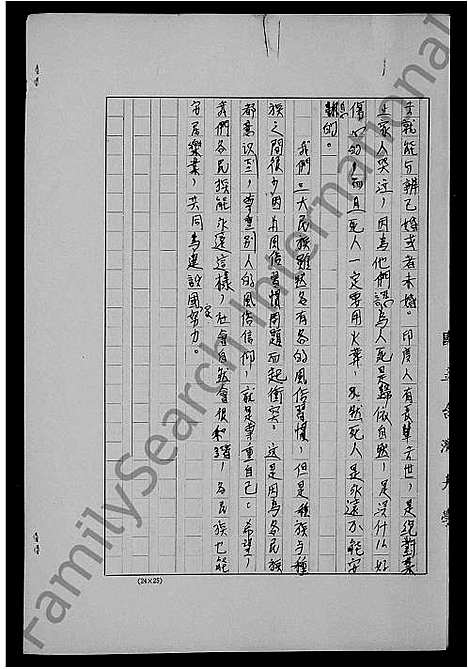 去就能分辨已婚或者未婚。印度人有長輩去世，是絕對禁
止家人哭泣，因為他們認為人死是歸依自然，是沒什么好
傷心的，而且死人一定要用火葬，不然死人是永遠不能安
息的。
我們三大民族雖然各有各的風俗習慣，但是種族与種
族之間很少因為風俗習慣問題而起衝突。這是因為各民族
都意识到，尊重別人的風俗信仰，就是尊重自己。希望，
我們各民族能永遠這樣，社會自然會很和諧，各民族也能
安居樂業，共同為建設國家努力。
(24×25)
FamilySearch International